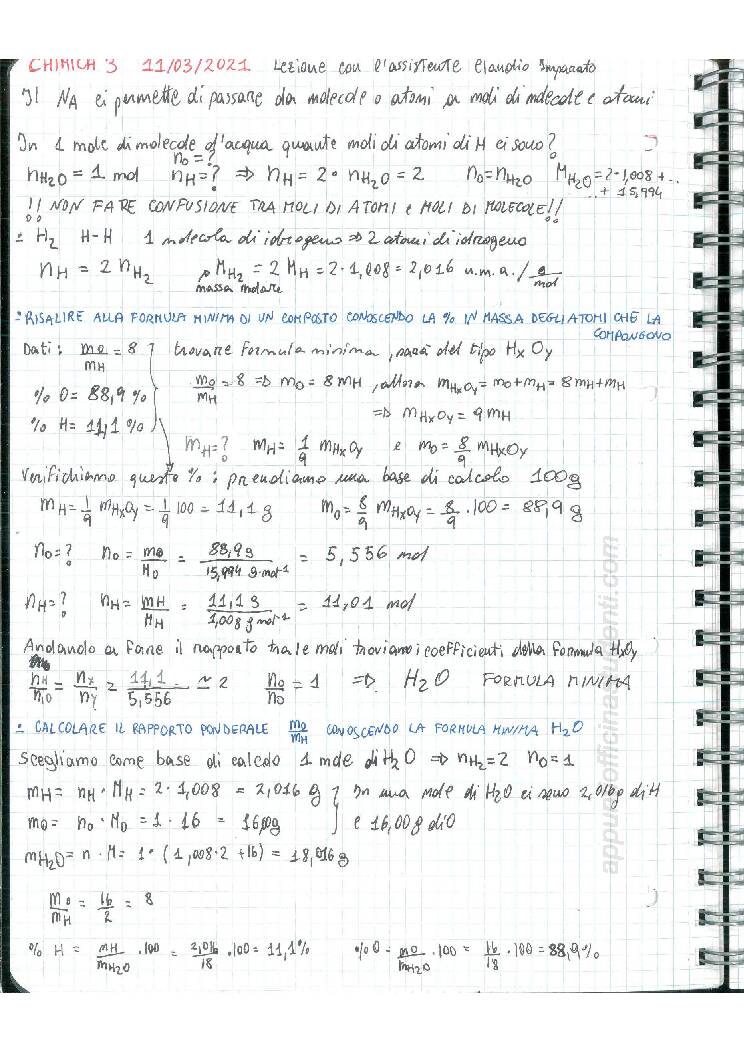 CHIMICA 3 11/03/2021 Lezione con l'assistente Claudio Imparato
Il NA ci permette di passare da molecole o atomi a moli di molecole e atomi
In 1 mole di molecole d'acqua quante moli di atomi di H ci sono?
nO = ?
nH2O = 1 mol nH = ? ⇒ nH = 2 · nH2O = 2 nO = nH2O MH2O = 2·1,008 + ...
... + 15,994
!! NON FARE CONFUSIONE TRA MOLI DI ATOMI e MOLI DI MOLECOLE!!
H2 H-H 1 molecola di idrogeno ⇒ 2 atomi di idrogeno
nH = 2 nH2 MH2 = 2 MH = 2·1,008 = 2,016 u.m.a. / g/mol
massa molare
RISALIRE ALLA FORMULA MINIMA DI UN COMPOSTO CONOSCENDO LA % IN MASSA DEGLI ATOMI CHE LA
COMPONGONO
Dati: mO/mH = 8 trovare formula minima, sarà del tipo HxOy
% O = 88,9 % mO/mH = 8 ⇒ mO = 8 mH, allora mHxOy = mO + mH = 8mH + mH
⇒ mHxOy = 9 mH
% H = 11,1 %
mH = ? mH = 1/9 mHxOy e mO = 8/9 mHxOy
Verifichiamo queste %: prendiamo una base di calcolo 100g
mH = 1/9 mHxOy = 1/9 100 = 11,1 g mO = 8/9 mHxOy = 8/9 · 100 = 88,9 g
nO = ? nO = mO/MO = 88,9 g/15,994 g·mol-1 = 5,556 mol
nH = ? nH = mH/MH = 11,1 g/1,008 g mol-1 = 11,01 mol
Andando a fare il rapporto tra le moli troviamo i coefficienti della formula HxOy
nH/nO = nx/ny = 11,1/5,556 ≃ 2 nO/nO = 1 ⇒ H2O FORMULA MINIMA
CALCOLARE IL RAPPORTO PONDERALE mO/mH CONOSCENDO LA FORMULA MINIMA H2O
Scegliamo come base di calcolo 1 mole di H2O ⇒ nH2 = 2 nO = 1
mH = nH · MH = 2 · 1,008 = 2,016 g } In una mole di H2O ci sono 2,016g di H
mO = nO · MO = 1 · 16 = 16,00g } e 16,00g di O
mH2O = n · M = 1 · (1,008·2 + 16) = 18,016 g
mO/mH = 16/2 = 8
% H = mH/mH2O · 100 = 2,016/18 · 100 = 11,1% % O = mO/mH2O · 100 = 16/18 · 100 = 88,9 %
appuntiofficinastudenti.com